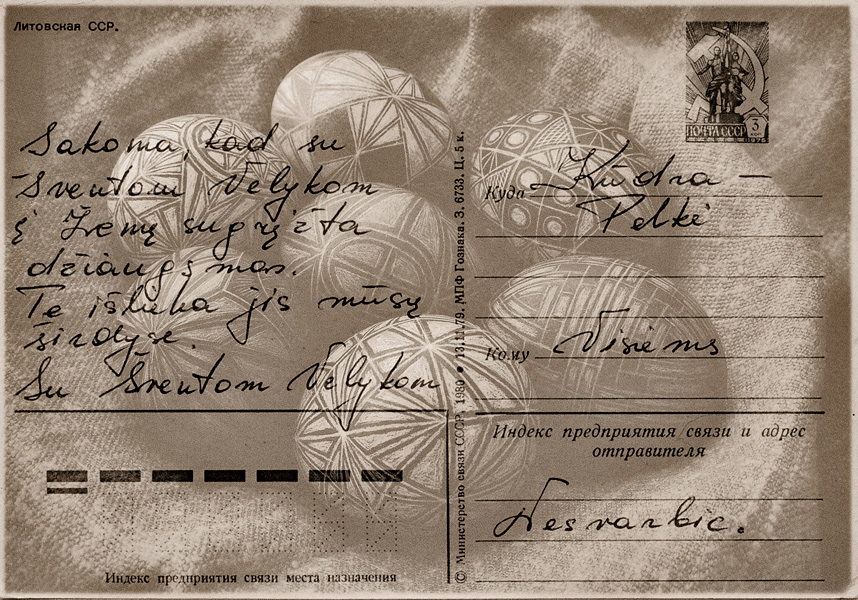 Литовская ССР.
Sakoma, kad su
Šventom Velykom
į Žemę sugrįžta
džiaugsmas.
Te išlieka jis mūsų
širdyse.
Su Šventom Velykom
Индекс предприятия связи места назначения
© Министерство связи СССР. 1980 • 13.11.79. МПФ Гознака. З. 6733. Ц. 5 к.
ПОЧТА СССР 3
Куда Kūdra –
Pelkė
Кому Visiems
Индекс предприятия связи и адрес
отправителя
Nesvarbic.